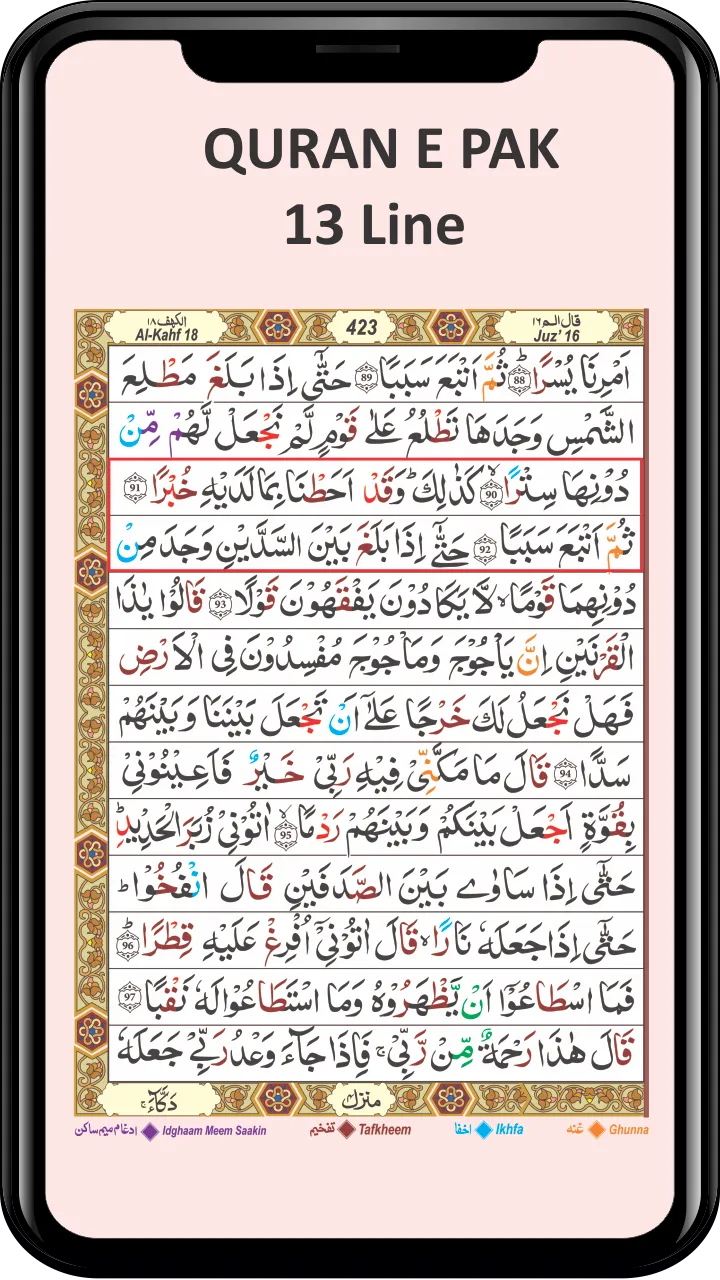 QURAN E PAK
13 Line
الكهف ١٨ 423 قال الم ١٦
Al-Kahf 18 Juz' 16
اَمْرِنَا يُسْرًا ؕ 88 ثُمَّ اَتْبَعَ سَبَبًا 89 حَتّٰۤى اِذَا بَلَغَ مَطْلِعَ
الشَّمْسِ وَجَدَهَا تَطْلُعُ عَلٰى قَوْمٍ لَّمْ نَجْعَلْ لَّهُمْ مِّنْ
دُوْنِهَا سِتْرًا ۙ 90 كَذٰلِكَ ؕ وَقَدْ اَحَطْنَا بِمَا لَدَيْهِ خُبْرًا 91
ثُمَّ اَتْبَعَ سَبَبًا 92 حَتّٰۤى اِذَا بَلَغَ بَيْنَ السَّدَّيْنِ وَجَدَ مِنْ
دُوْنِهِمَا قَوْمًا ۙ لَّا يَكَادُوْنَ يَفْقَهُوْنَ قَوْلًا 93 قَالُوْا يٰذَا
الْقَرْنَيْنِ اِنَّ يَاْجُوْجَ وَمَاْجُوْجَ مُفْسِدُوْنَ فِى الْاَرْضِ
فَهَلْ نَجْعَلُ لَكَ خَرْجًا عَلٰۤى اَنْ تَجْعَلَ بَيْنَنَا وَبَيْنَهُمْ
سَدًّا 94 قَالَ مَا مَكَّنِّىْ فِيْهِ رَبِّىْ خَيْرٌ فَاَعِيْنُوْنِىْ
بِقُوَّةٍ اَجْعَلْ بَيْنَكُمْ وَبَيْنَهُمْ رَدْمًا ۙ 95 اٰتُوْنِىْ زُبَرَ الْحَدِيْدِ ؕ
حَتّٰۤى اِذَا سَاوٰى بَيْنَ الصَّدَفَيْنِ قَالَ انْفُخُوْا ؕ
حَتّٰۤى اِذَا جَعَلَهٗ نَارًا ۙ قَالَ اٰتُوْنِىْۤ اُفْرِغْ عَلَيْهِ قِطْرًا ؕ 96
فَمَا اسْطَاعُوْۤا اَنْ يَّظْهَرُوْهُ وَمَا اسْتَطَاعُوْا لَهٗ نَقْبًا 97
قَالَ هٰذَا رَحْمَةٌ مِّنْ رَّبِّىْ ۚ فَاِذَا جَآءَ وَعْدُ رَبِّىْ جَعَلَهٗ
منزل ٤ دَكَّآءَ ۚ
ادغام میم ساکن Idghaam Meem Saakin تفخیم Tafkheem اخفا Ikhfa غنه Ghunna